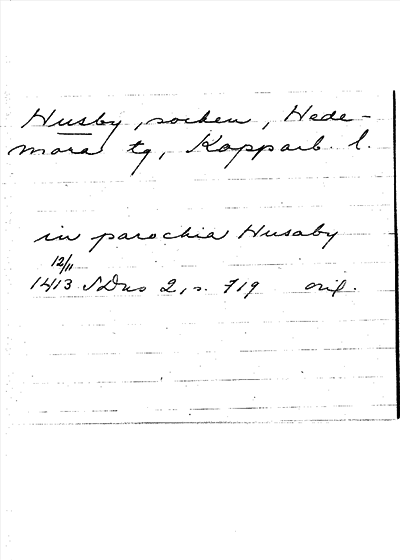 Husby, socken, Hede-
mora tg, Kopparb. l.
in parochia Husaby
12/11
1413 SDns 2, s. 719 orig.